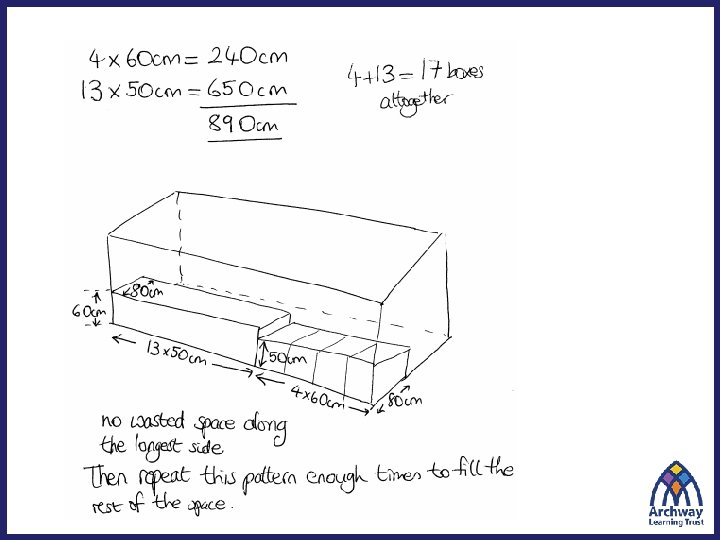 4 × 60cm = 240cm
13 × 50cm = 650cm
890cm
4+13 = 17 boxes
altogether
80cm
60cm
13×50cm
50cm
4×60cm
80cm
no wasted space along
the longest side.
Then repeat this pattern enough times to fill the
rest of the space.
Archway
Learning Trust